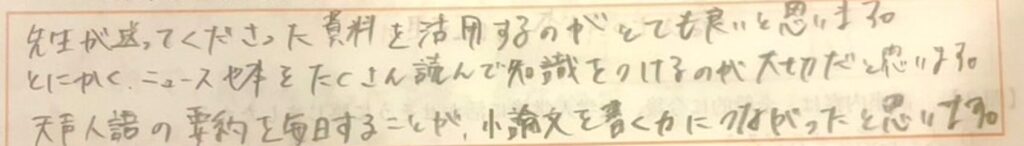 先生が送ってくださった資料を活用するのがとても良いと思います。
とにかく、ニュースや本をたくさん読んで知識をつけるのが大切だと思います。
天声人語の要約を毎日することが、小論文を書く力につながったと思います。